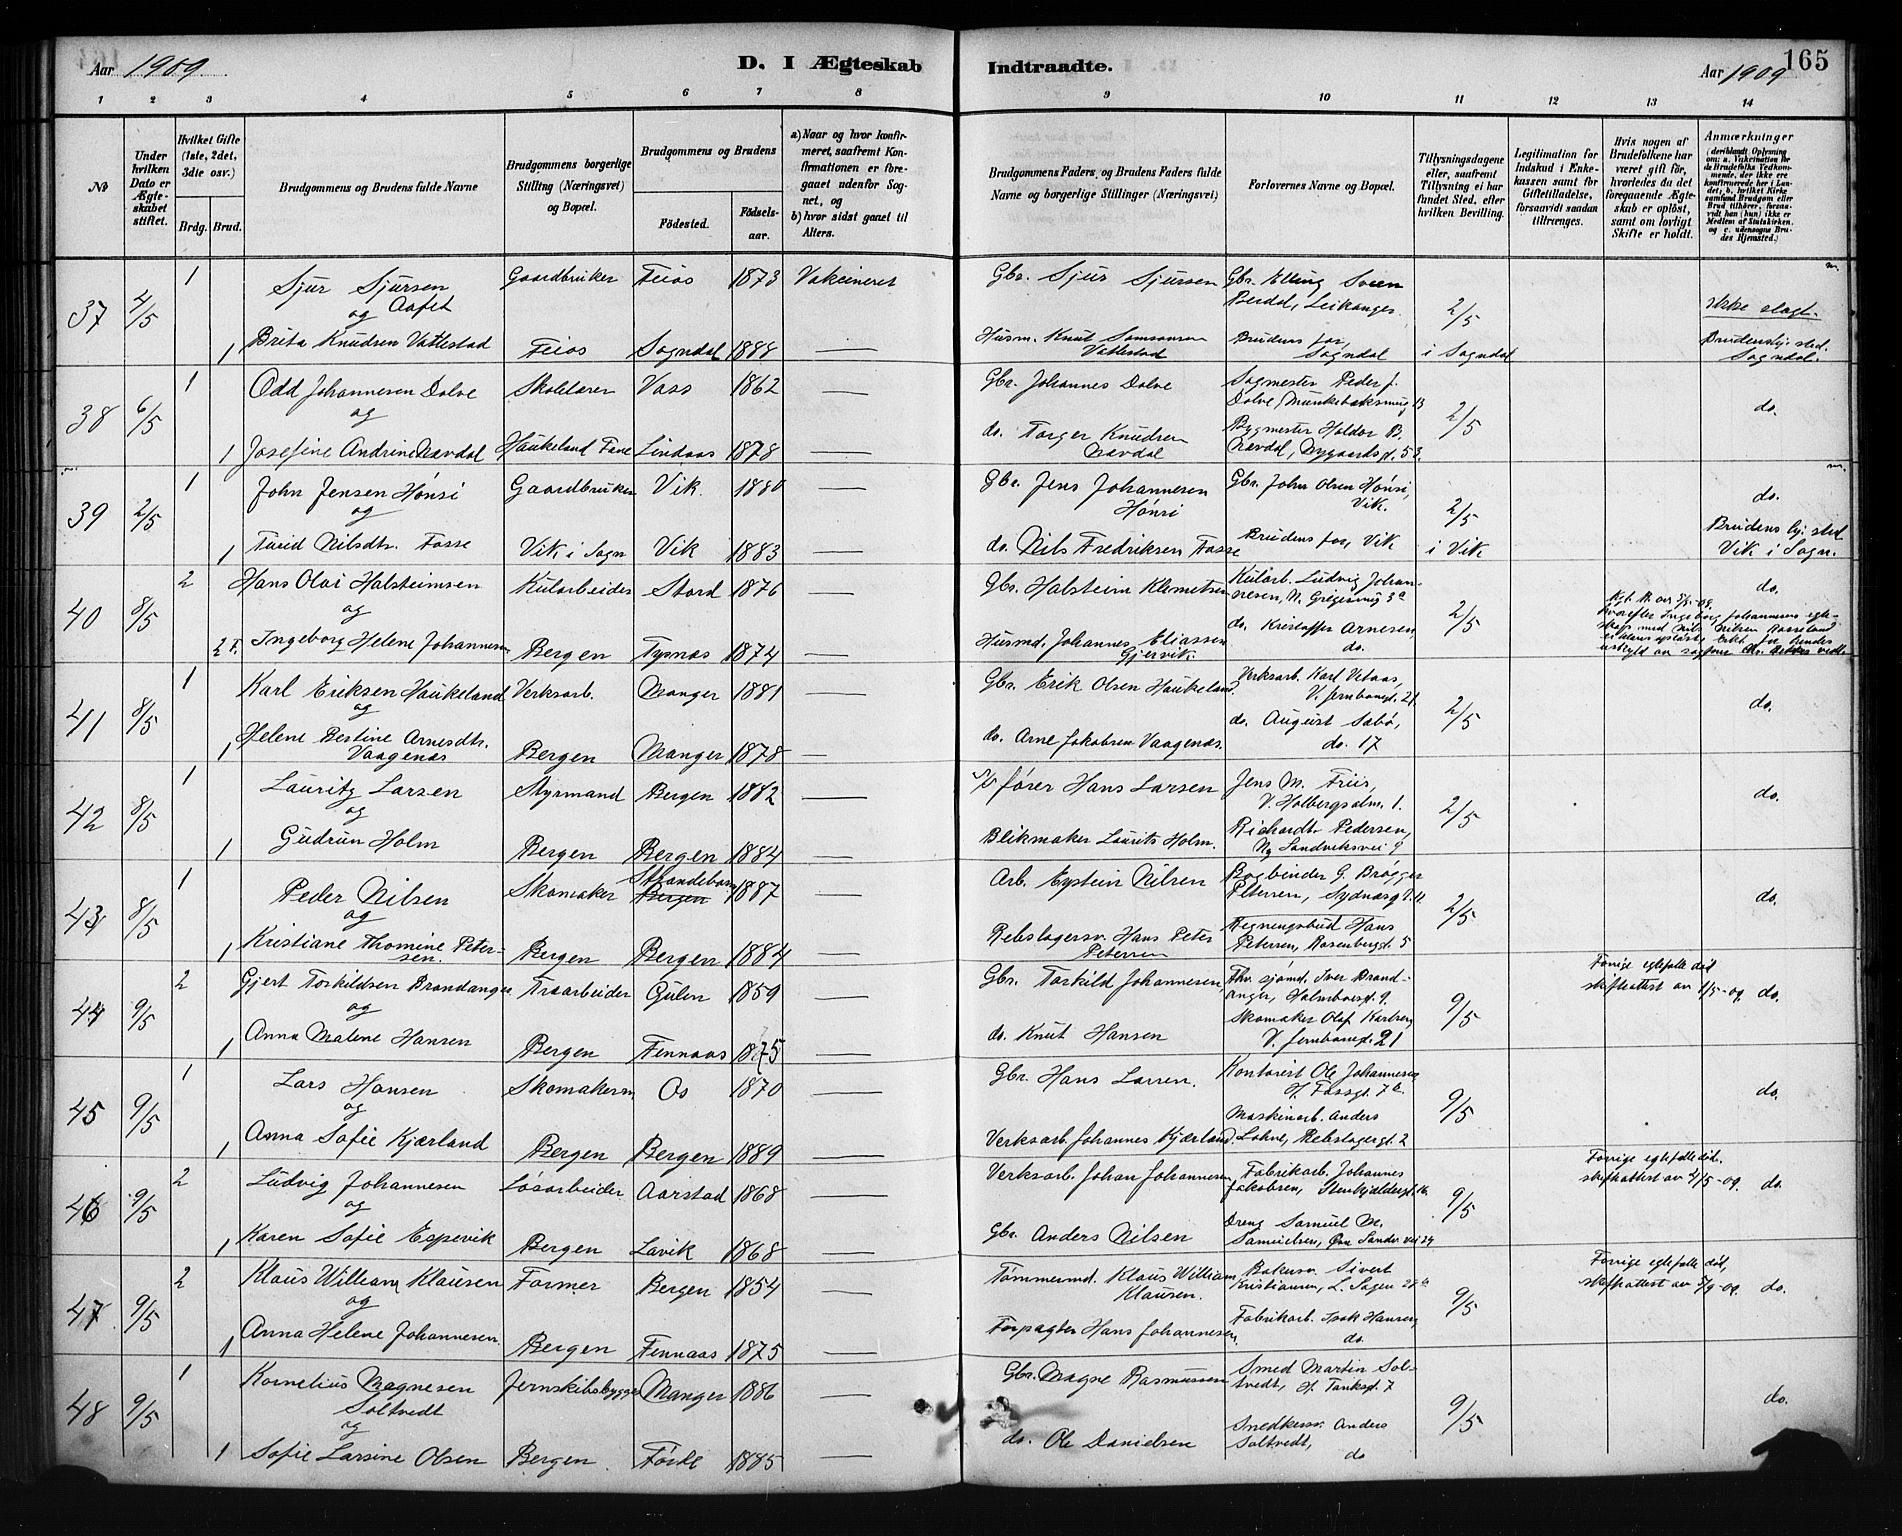 Aar 1909. D. I Ægteskab Indtraadte. Aar 1909 165
1 2 3 4 5 6 7 8 9 10 11 12 13 14
No
Under hvilken Dato er Ægteskabet stiftet.
Hvilket Gifte (1ste, 2det, 3die osv.)
Brdg. Brud.
Brudgommens og Brudens fulde Navne
Brudgommens borgerlige Stilling (Næringsvei) og Bopæl.
Brudgommens og Brudens
Fødested. Fødselsaar.
a) Naar og hvor konfirmeret, saafremt Konfirmationen er foregaaet udenfor Sognet, og
b) hvor sidst gaaet til Alters.
Brudgommens Faders, og Brudens Faders fulde Navne og borgerlige Stillinger (Næringsvei)
Forlovernes Navne og Bopæl.
Tillysningsdagene eller, saafremt Tillysning ei har fundet Sted, efter hvilken Bevilling.
Legitimation for Indskud i Enkekassen samt for Giftetilladelse, forsaavidt saadan tiltrænges.
Hvis nogen af Brudefolkene har været gift før, hvorledes da det foregaaende Ægteskab er opløst, samt om lovligt Skifte er holdt.
Anmærkninger (deriblandt Oplysning om: a. Vakcination for de Brudefolks Vedkommende, der ikke ere konfirmerede her i Landet; b. hvilket Kirkesamfund Brudgom eller Brud tilhører, forsaavidt han (hun) ikke er Medlem af Statskirken, og c. udensogns Brudes Hjemsted.)
37 4/5 1 Sjur Sjursen Gaardbruker Feios 1873 Vakcineret Gbr. Sjur Sjursen Gbr. Elling Svein
og Aafet Berdal, Leikanger. 2/5 ikke slegt.
1 Brita Knudsen Vattestad Feios Sogndal 1888 — Husm. Knut Samsonsen Vattestad Brudens far, Sogndal i Sogndal Brudens hj. sted Sogndal.
38 6/5 1 Odd Johannesen Dolve Skolelærer Voss 1862 — Gbr. Johannes Dolve Sagmester Peder J.
og Dolve, Munkebæksmug 13 2/5 do.
1 Josefine Andrine Navdal Haukeland Fane Lindaas 1878 — do. Torger Knudsen Navdal Bygmester Haldor B. Navdal, Nygaardsg.
39 2/5 1 John Jensen Hønsi Gaardbruker Vik. 1880 — Gbr. Jens Johannesen Hønsi Gbr. John Olsen Hønsi, Vik.
og 2/5 do.
1 Turid Nilsdtr. Fosse Vik i Sogn Vik 1883 — do. Nils Fredriksen Fosse Brudens far, Vik i Vik Brudens hj. sted Vik i Sogn.
40 8/5 2 Hans Olai Halsteimsen Kularbeider Stord 1876 — Gbr. Halsteim Klemetsen Kularb. Ludvig Johannesen,
og 2/5 do.
2 F. Ingeborg Helene Johannesen Bergen Tysnes 1874 — Husmd. Johannes Eliassen Gjervik. do. Kristoffer Arnesen, do.
hvorefter Ingeborg Johannesens egteskap med Nils Nilsen
41 8/5 1 Karl Eriksen Haukeland Verksarb. Manger 1881 — Gbr. Erik Olsen Haukeland. Verksarb. Karl Vetaas, V. Jernbanegt. 21.
og 2/5 do.
1 Helene Bertine Arnesdtr. Vaagenes Bergen Manger 1878 — do. Arne Jakobsen Vaagenes. do. August Sæbø, do. 17
42 8/5 1 Lauritz Larsen Styrmand Bergen 1882 — fører Hans Larsen Jens M. Friis, V. Holbergsalm. 1.
og 2/5 do.
1 Gudrun Holm Bergen Bergen 1884 — Blikmaker Laurits Holm. Richardt Pedersen, Ny Sandviksvei 9
43 8/5 1 Peder Nilsen Skomaker Strandebarm Bergen 1887 — Arb. Eystein Nilsen Bogbinder G. Brøgger Petersen, Sydnesg.
og 2/5 do.
1 Kristiane Thomine Petersen. Bergen Bergen 1884 — Rebslagersv. Hans Peter Petersen Regningsbud Hans Petersen, Rosenbergt. 5
44 9/5 2 Gjert Torkildsen Brandanger Træarbeider Gulen 1859 — Gbr. Torkild Johannesen, Fhv. sjømd. Iver Brandanger, Holmboesgt. 9. Forrige egtefelle død skifteattest av 1/5-09 do.
og 9/5
1 Anna Malene Hansen Bergen Fennaas 1875 — do. Knut Hansen Skomaker Olaf Karlsen, V. Jernbanegt. 21
45 9/5 1 Lars Hansen Skomakersv. Os 1870 — Gbr. Hans Larsen. Kontorist Ole Johannesen
og 9/5 do.
1 Anna Sofie Kjærland Bergen Bergen 1889 — Verksarb. Johannes Kjærland. Maskinarb. Anders Lohne, Rebslagergt. 2
46 9/5 2 Ludvig Johannesen Løsarbeider Aarstad 1868 — Verksarb. Johan Johannesen, Fabrikarb. Johannes Jakobsen, Forrige egtefelle død. skifteattest av 4/5-09. do.
og 9/5
1 Karen Sofie Espevik Bergen Lavik 1868 — Gbr. Anders Nilsen Dreng Samuel M. Samuelsen, Øvre Sandv. vei 24
47 9/5 2 Klaus William Klausen Former Bergen 1854 — Tømmermd. Klaus William Klausen. Bakersv. Sivert Kristiansen, L. Sagen Forrige egtefelle død, skifteattest av 5/9-09. do.
og 9/5
1 Anna Helene Johannesen Bergen Fennaas 1875 — Forpagter Hans Johannesen, Fabrikarb. Isak Hansen, do.
48 9/5 1 Kornelius Magnesen Soltvedt Jernskibsbygger Manger 1886 — Gbr. Magne Rasmussen Smed Martin Soltvedt, H. Tanksgt. 7
og 9/5 do.
1 Sofie Larsine Olsen Bergen. Førde 1885 — do. Ole Danielsen Snedkersv. Anders Soltvedt, do